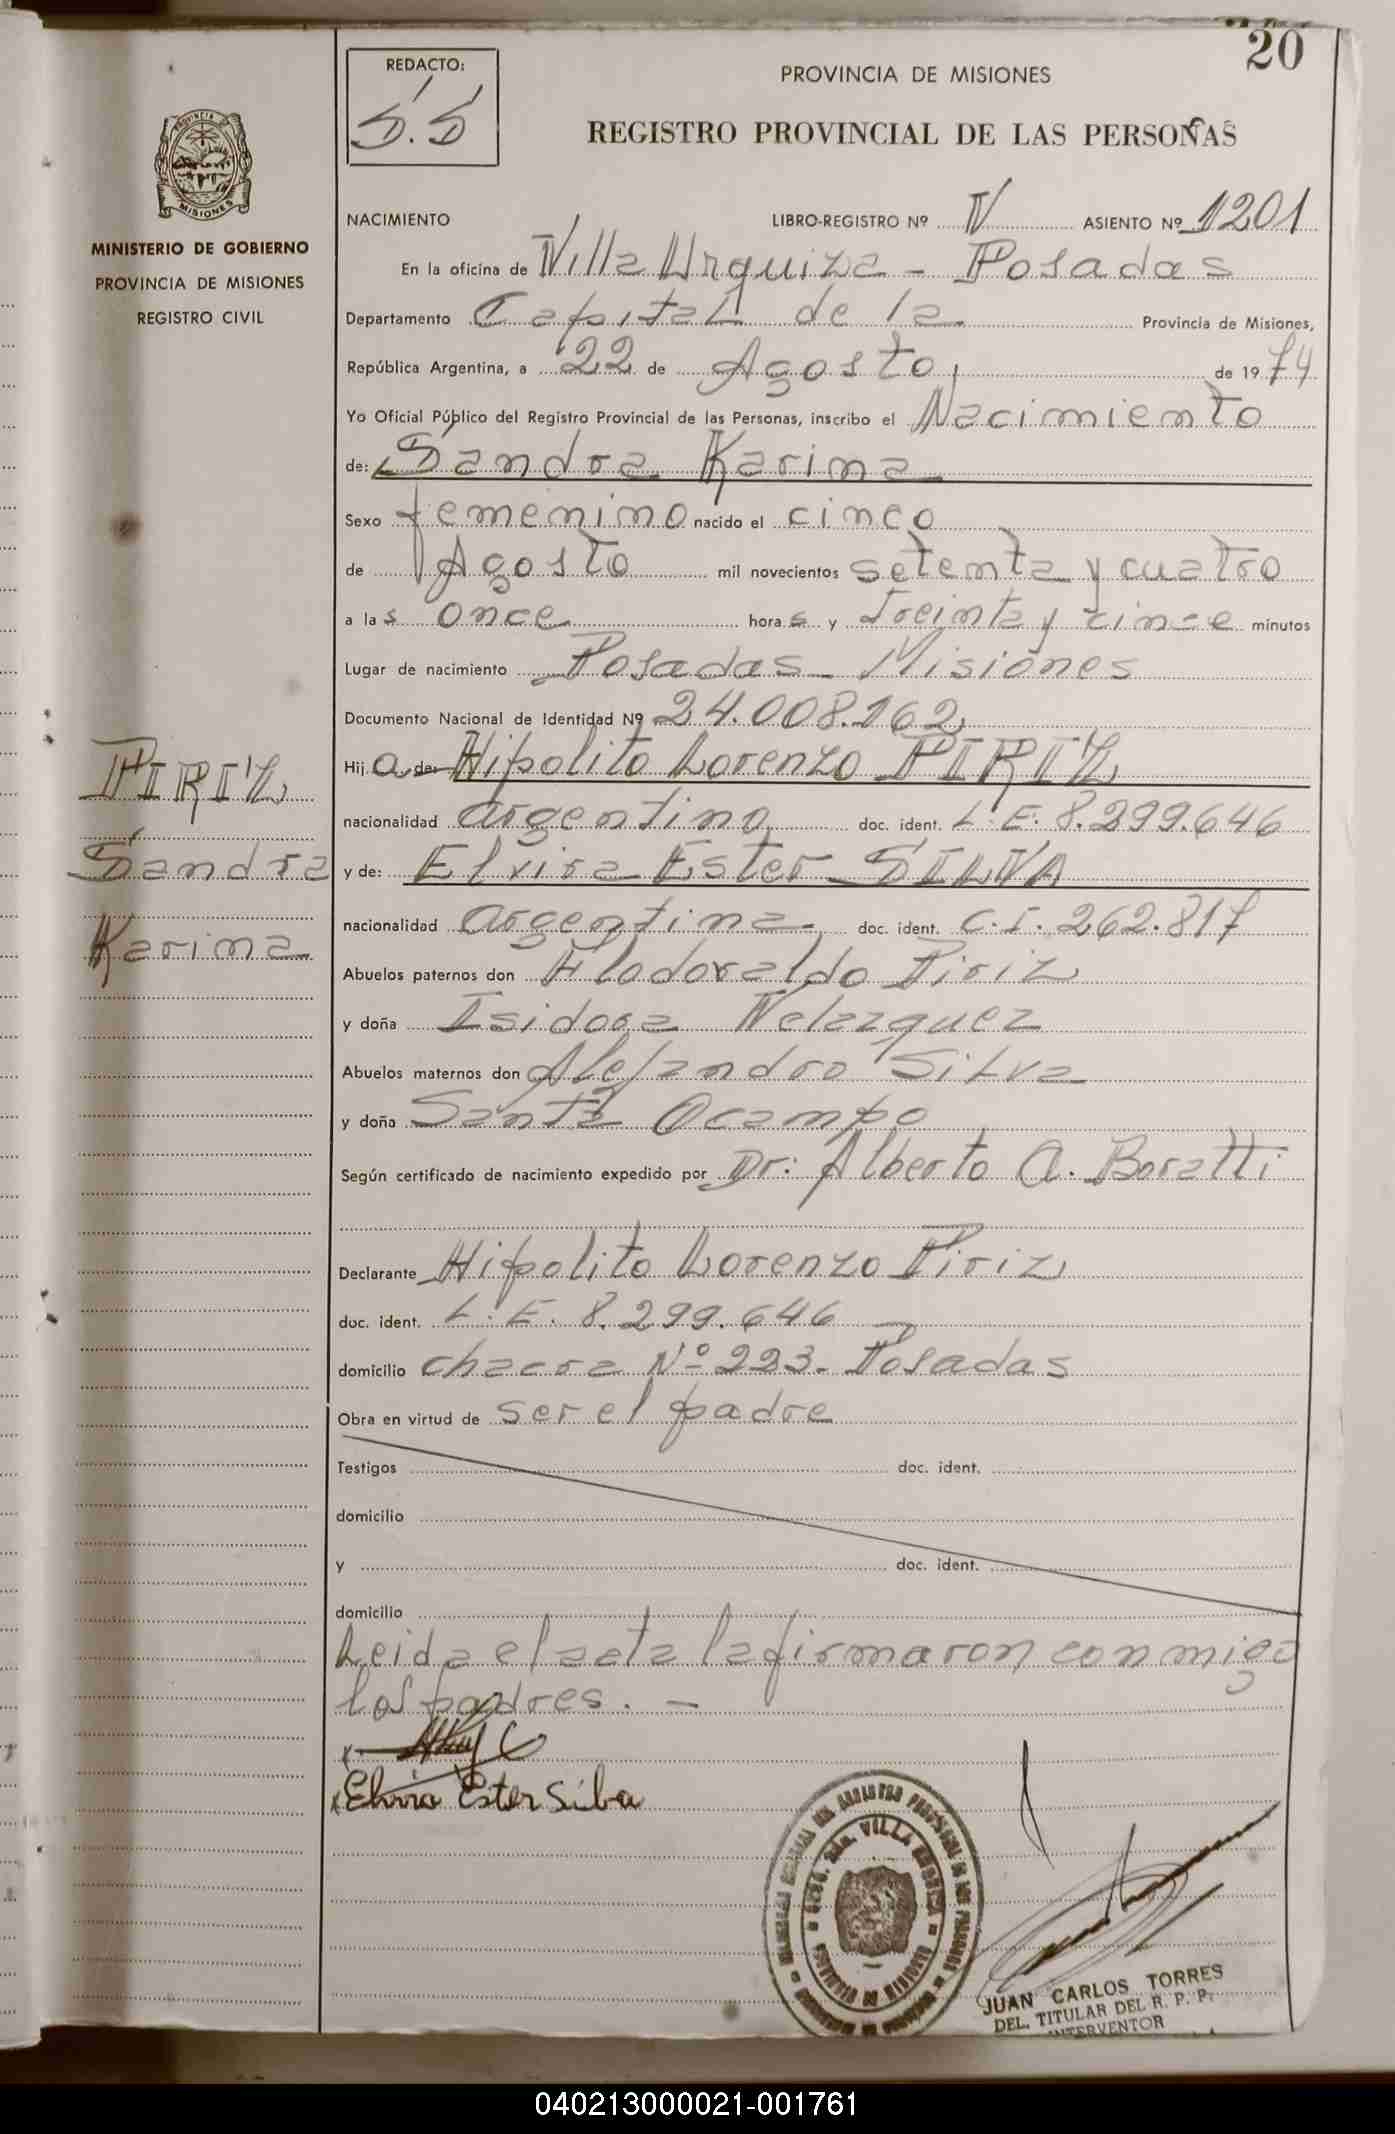 20
REDACTO:
S.S
PROVINCIA DE MISIONES
REGISTRO PROVINCIAL DE LAS PERSONAS
PROVINCIA
MISIONES
MINISTERIO DE GOBIERNO
PROVINCIA DE MISIONES
REGISTRO CIVIL
NACIMIENTO LIBRO-REGISTRO Nº IV ASIENTO Nº 1201
En la oficina de Villa Urquiza - Posadas
Departamento Capital de la Provincia de Misiones,
República Argentina, a 22 de Agosto, de 1974
Yo Oficial Público del Registro Provincial de las Personas, inscribo el Nacimiento
de: Sandra Karina
Sexo femenino nacido el cinco
de Agosto mil novecientos setenta y cuatro
a las once horas y treinta y cinco minutos
Lugar de nacimiento Posadas - Misiones
Documento Nacional de Identidad Nº 24.008.162
Hija de: Hipolito Lorenzo PIRIZ
nacionalidad argentino doc. ident. L.E. 8.299.646
y de: Elvira Ester SILVA
nacionalidad argentina doc. ident. C.I. 262.817
Abuelos paternos don Clodoraldo Piriz
y doña Isidora Velazquez
Abuelos maternos don Alejandro Silva
y doña Santa Ocampo
Según certificado de nacimiento expedido por Dr: Alberto A. Boratti
Declarante Hipolito Lorenzo Piriz
doc. ident. L.E. 8.299.646
domicilio chacra Nº 223- Posadas
Obra en virtud de ser el padre
Testigos doc. ident.
domicilio
y doc. ident.
domicilio
Leida el acta la firmaron conmigo
los padres. -
x Elvira Ester Silva
PIRIZ
Sandra
Karina
JUAN CARLOS TORRES
DEL. TITULAR DEL R. P. P.
INTERVENTOR
040213000021-001761